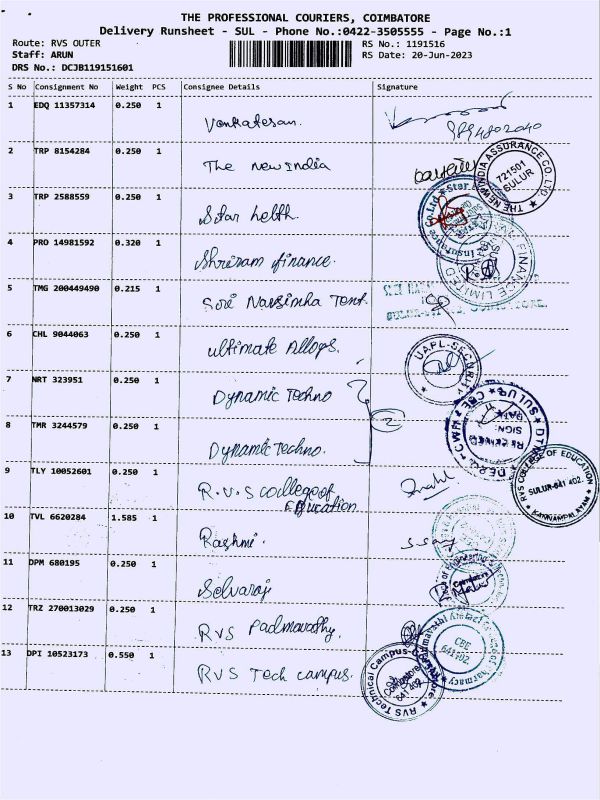 THE PROFESSIONAL COURIERS, COIMBATORE
Delivery Runsheet - SUL - Phone No.:0422-3505555 - Page No.:1
Route: RVS OUTER RS No.: 1191516
Staff: ARUN RS Date: 20-Jun-2023
DRS No.: DCJB119151601
S No Consignment No Weight PCS Consignee Details Signature
1 EDQ 11357314 0.250 1
Venkatesan.
2 TRP 8154284 0.250 1
The New India
THE NEW INDIA ASSURANCE CO. LTD
721501
SULUR
3 TRP 2588559 0.250 1
Star helth.
Star
Insurance Co.Ltd
4 PRO 14981592 0.320 1
Shriram finance.
FINANCE LIMITED
5 TMG 200449490 0.215 1
Sri Narsimha Tent.
6 CHL 9044063 0.250 1
ultimate Alloys.
UAPL-SECURITY
7 NRT 323951 0.250 1
Dynamic Techno
2
8 TMR 3244579 0.250 1
Dynamic Techno.
SULUR
DATE
SIGN:
RECEIVED
9 TLY 10052601 0.250 1
R.V.S college of
Education
RVS COLLEGE OF EDUCATION
SULUR-641 402.
KANNAMPALAYAM
10 TVL 6620284 1.585 1
Rashmi.
11 DPM 680195 0.250 1
Selvaraj
Coimbatore
12 TRZ 270013029 0.250 1
RVS Padmavathy.
CBE
641 402.
13 DPI 10523173 0.550 1
RVS Tech campus.
RVS Technical Campus-Coimbatore
Coimbatore
641 402